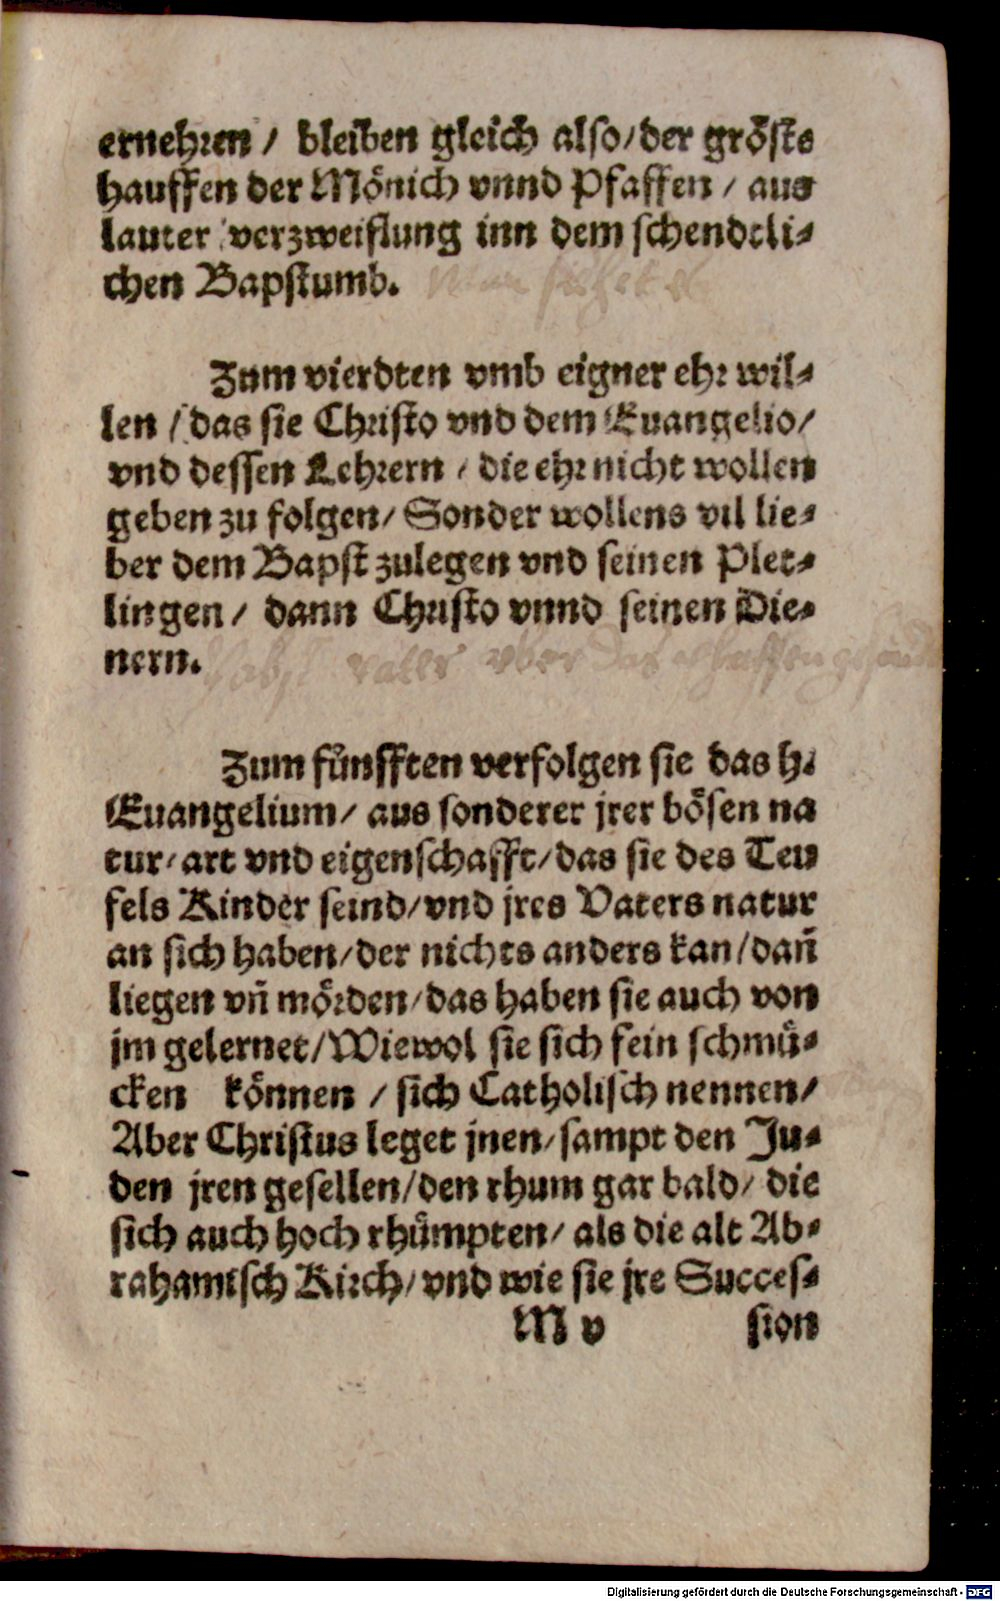 ernehren / bleiben gleich also/der gröste
hauffen der Mönich vnnd Pfaffen / aus
lauter verzweiflung inn dem schendeli-
chen Bapstumb.
Zum vierdten vmb eigner ehr wil-
len / das sie Christo vnd dem Euangelio/
vnd dessen Lehrern / die ehr nicht wollen
geben zu folgen/ Sonder wollens vil lie-
ber dem Bapst zulegen vnd seinen Plet-
lingen / dann Christo vnnd seinen Die-
nern.
Zum fünfften verfolgen sie das h.
Euangelium/ aus sonderer jrer bösen na
tur/ art vnd eigenschafft/das sie des Teu
fels Kinder seind/vnd jres Vaters natur
an sich haben/der nichts anders kan/dañ
liegen vñ mörden/das haben sie auch von
jm gelernet/Wiewol sie sich fein schmü-
cken können / sich Catholisch nennen/
Aber Christus leget jnen/sampt den Ju-
den jren gesellen/den rhum gar bald/ die
sich auch hoch rhümpten/ als die alt Ab-
rahamisch Kirch/ vnd wie sie jre Succes-
M v sion
Digitalisierung gefördert durch die Deutsche Forschungsgemeinschaft - DFG